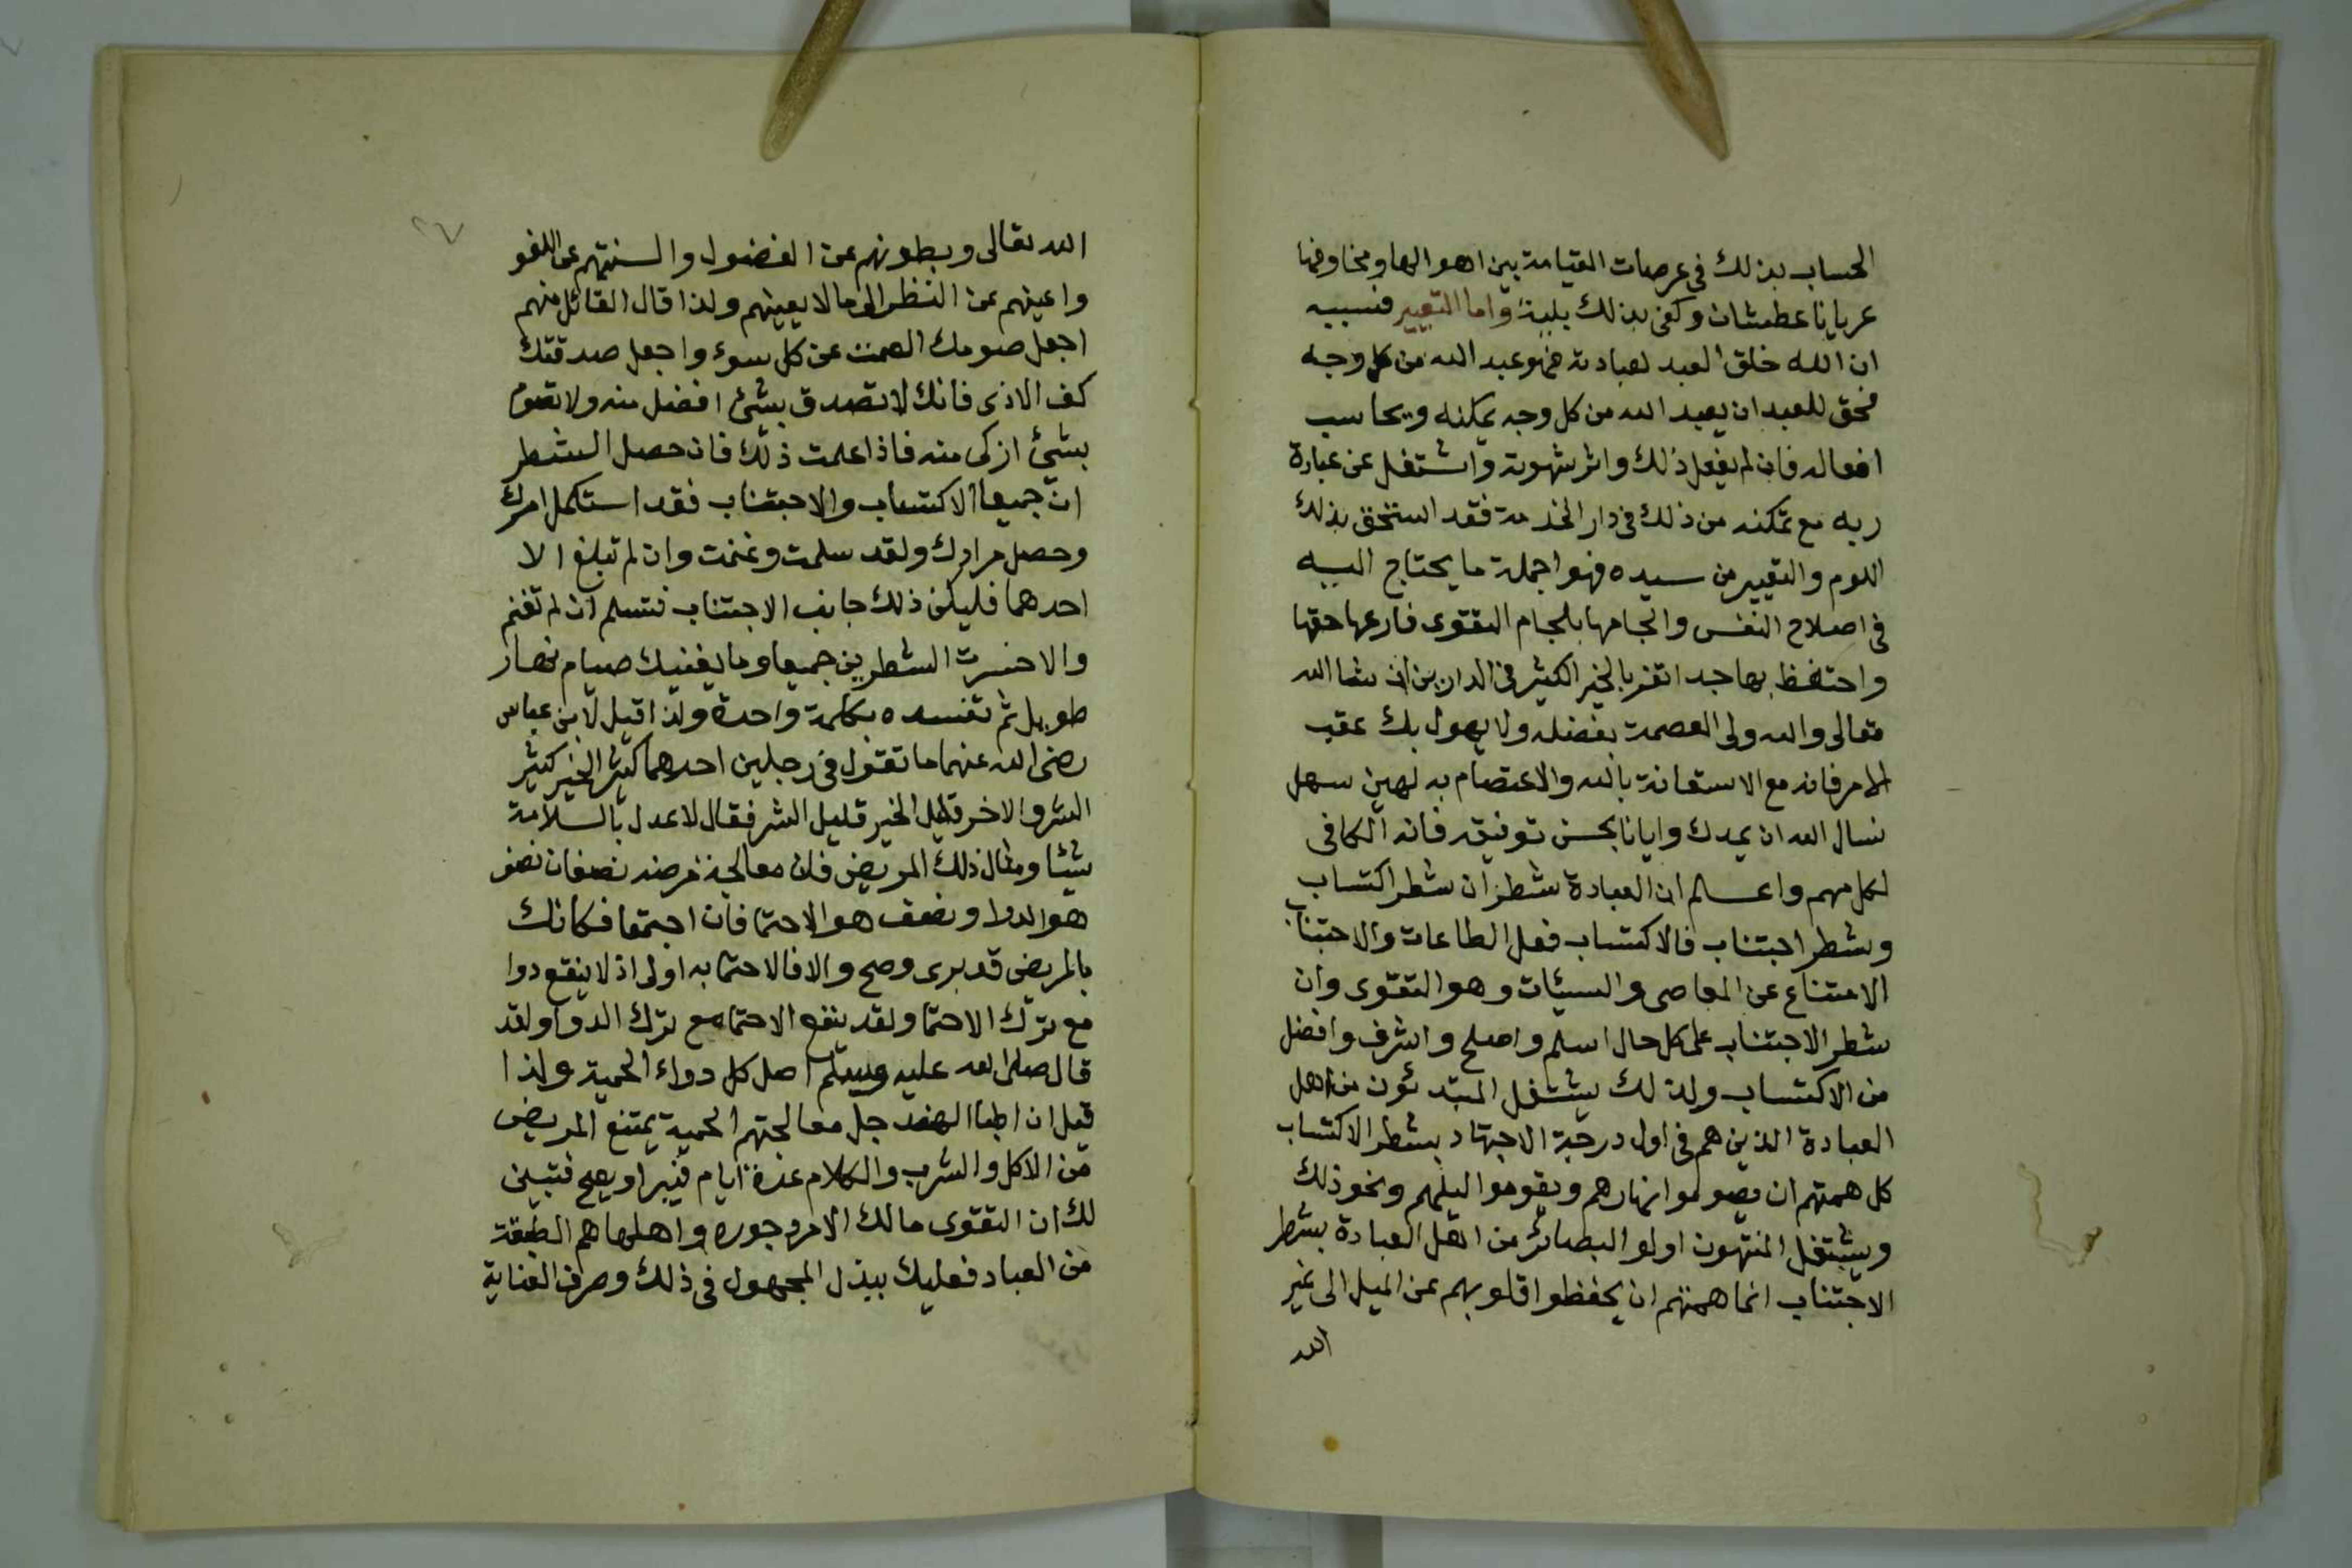 الحساب بذلك في عرصات القيامة بين اهوالها ومخاوفها
عريانا عطشان وكفى بذلك بلية واما التعيير فسببه
ان الله خلق العبد لعبادته فهو عبد الله من كل وجه
فحق للعبد ان يعبد الله من كل وجه يمكنه ويحاسب
افعاله فان لم يفعل ذلك واثر شهوته واشتغل عن عبادة
ربه مع تمكنه من ذلك في دار الخدمة فقد استحق بذلك
اللوم والتعيير من سيده فهو اجملة ما يحتاج اليه
في اصلاح النفس والجامها بلجام التقوى فارعها حقها
واحتفظ بها جدا تفز بالخير الكثير في الدارين ان شا الله
تعالى والله ولى العصمة بفضله ولا يهول بك عقب
الامر فانه مع الاستعانة بالله والاعتصام به لهين سهل
نسال الله ان يمدك وايانا بحسن توفيقه فانه الكافى
لكل مهم واعلم ان العبادة شطران شطر اكتساب
وشطر اجتناب فالاكتساب فعل الطاعات والاجتناب
الامتناع عن المعاصى والسيئات وهو التقوى وان
شطر الاجتناب على كل حال اسلم واصلح واشرف وافضل
من الاكتساب ولذلك يشتغل المبتدئون من اهل
العبادة الذين هم في اول درجة الاجتهاد بشطر الاكتساب
كل همتهم ان يصوموا نهارهم ويقوموا ليلهم ونحو ذلك
ويشتغل المنتهون اولو البصائر من اهل العبادة بشطر
الاجتناب انما همتهم ان يحفظوا قلوبهم عن الميل الى غير
الله
٢٧
الله تعالى وبطونهم عن الفضول والسنتهم عن اللغو
واعينهم عن النظر الى ما لا يعينهم ولذا قال القائل منهم
اجعل صومك الصمت عن كل سوء واجعل صدقتك
كف الاذى فانك لا تصدق بشئ افضل منه ولا تصوم
بشئ ازكى منه فاذا علمت ذلك فان حصل الشطر
ان جميعا الاكتساب والاجتناب فقد استكمل امرك
وحصل مرادك ولقد سلمت وغنمت وان لم تبلغ الا
احدهما فليكن ذلك جانب الاجتناب فتسلم ان لم تغنم
والا خسرت الشطرين جميعا وما يغنيك صيام نهار
طويل ثم تفسده بكلمة واحدة ولذا قيل لابن عباس
رضى الله عنهما ما تقول في رجلين احدهما كثير الخير كثير
الشر والاخر قليل الخير قليل الشر فقال لا عدل بالسلامة
شيئا ومثال ذلك المريض فان معالجة مرضه نصفان نصف
هو الدوا ونصف هو الاحتما فان اجتمعا فكانك
بالمريض قد برى وصح والا فالاحتما به اولى اذ لا ينفع دوا
مع ترك الاحتما ولقد ينفع الاحتما مع ترك الدوا ولقد
قال صلى الله عليه وسلم اصل كل دواء الحمية ولذا
قيل ان اطبا الهند جل معالجتهم الحمية يمتنع المريض
من الاكل والشرب والكلام عدة ايام فيبرا ويصح فتبين
لك ان التقوى مالك الامر وجوره واهلها هم الطبقة
من العباد فعليك ببذل المجهول في ذلك وصرف العناية